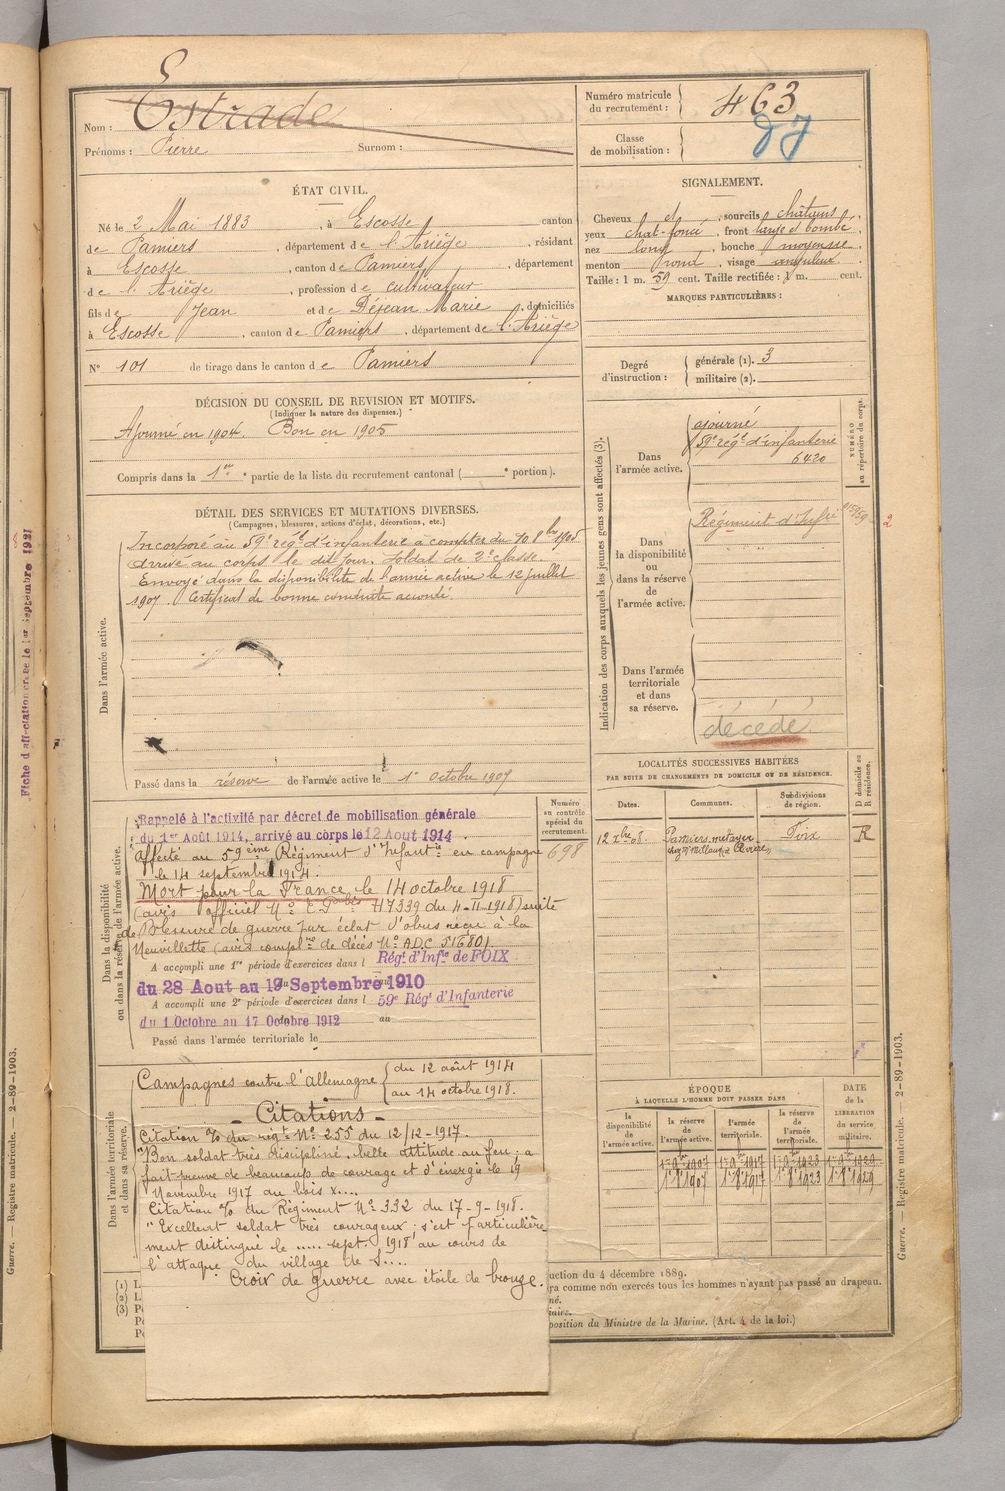 Nom : Estrade
Prénoms : Pierre Surnom :
Numéro matricule du recrutement : 463
Classe de mobilisation :
ÉTAT CIVIL.
Né le 2 Mai 1883, à Escosse, canton
de Pamiers, département de l'Ariège, résidant
à Escosse, canton de Pamiers, département
de l'Ariège, profession de cultivateur
fils de Jean et de Déjean Marie, domiciliés
à Escosse, canton de Pamiers, département de l'Ariège
N° 101 de tirage dans le canton de Pamiers
SIGNALEMENT.
Cheveux et, sourcils châtains,
yeux chat-foncé, front large et bombé
nez long, bouche moyenne,
menton rond, visage anguleux.
Taille : 1 m. 59 cent. Taille rectifiée : 1 m. cent.
MARQUES PARTICULIÈRES :
Degré d'instruction : générale (1). 3
militaire (2).
DÉCISION DU CONSEIL DE REVISION ET MOTIFS.
(Indiquer la nature des dispenses.)
Ajourné en 1904. Bon en 1905
Compris dans la 1re partie de la liste du recrutement cantonal ( e portion).
DÉTAIL DES SERVICES ET MUTATIONS DIVERSES.
(Campagnes, blessures, actions d'éclat, décorations, etc.)
Dans l'armée active.
Incorporé au 59e régt d'infanterie à compter du 10 8bre 1905
arrivé au corps le dit jour. Soldat de 2e classe.
Envoyé dans la disponibilité de l'armée active le 12 juillet
1907. Certificat de bonne conduite accordé.
Passé dans la réserve de l'armée active le 1er octobre 1907
Indication des corps auxquels les jeunes gens sont affectés (3).
NUMÉRO au répertoire du corps.
Dans l'armée active.
ajourné
59e régt d'infanterie
6420
Dans la disponibilité ou dans la réserve de l'armée active.
Régiment d'Infie
Dans l'armée territoriale et dans sa réserve.
décédé
LOCALITÉS SUCCESSIVES HABITÉES
PAR SUITE DE CHANGEMENTS DE DOMICILE OU DE RÉSIDENCE.
Dates. Communes. Subdivisions de région. D domicile ou R résidence.
12 Xbre 08. Pamiers, métayer Foix R
Dans la disponibilité ou dans la réserve de l'armée active.
Numéro au contrôle spécial du recrutement.
698
Rappelé à l'activité par décret de mobilisation générale
du 1er Août 1914, arrivé au corps le 12 Aout 1914.
Affecté au 59ème Régiment d'Infantie en campagne
le 14 septembre 1914.
Mort pour la France le 14 octobre 1918
(avis officiel N° 17339 du 4-II-1918) suite
de Blessure de guerre par éclat d'obus reçu à la
Neuvillette (avis complre de décès N° A.D.C. 51680).
A accompli une 1re période d'exercices dans l Régt d'Infie de FOIX
du 28 Aout au 19 Septembre 1910
A accompli une 2e période d'exercices dans l 59e Régt d'Infanterie
du 1 Octobre au 17 Octobre 1912 au
Passé dans l'armée territoriale le
Dans l'armée territoriale et dans sa réserve.
Campagnes contre l'Allemagne du 12 août 1914
au 14 octobre 1918.
- Citations -
Citation % du régt N° 255 du 12/12-1917.
"Bon soldat très discipliné, belle attitude au feu ; a
fait preuve de beaucoup de courage et d'énergie le 19
Novembre 1917 au bois x....
Citation % du Régiment N° 332 du 17-9-1918.
"Excellent soldat très courageux ; s'est particulière-
ment distingué le ..... sept. 1918 au cours de
l'attaque du village de S....
Croix de guerre avec étoile de bronze.
ÉPOQUE
À LAQUELLE L'HOMME DOIT PASSER DANS
la disponibilité de l'armée active. la réserve de l'armée active. l'armée territoriale. la réserve de l'armée territoriale.
DATE de la LIBÉRATION du service militaire.
uction du 4 décembre 1889.
ra comme non exercés tous les hommes n'ayant pas passé au drapeau.
né.
position du Ministre de la Marine. (Art. 4 de la loi.)
Guerre. — Registre matricule. — 2-89-1903.
Guerre. — Registre matricule. — 2-89-1903.